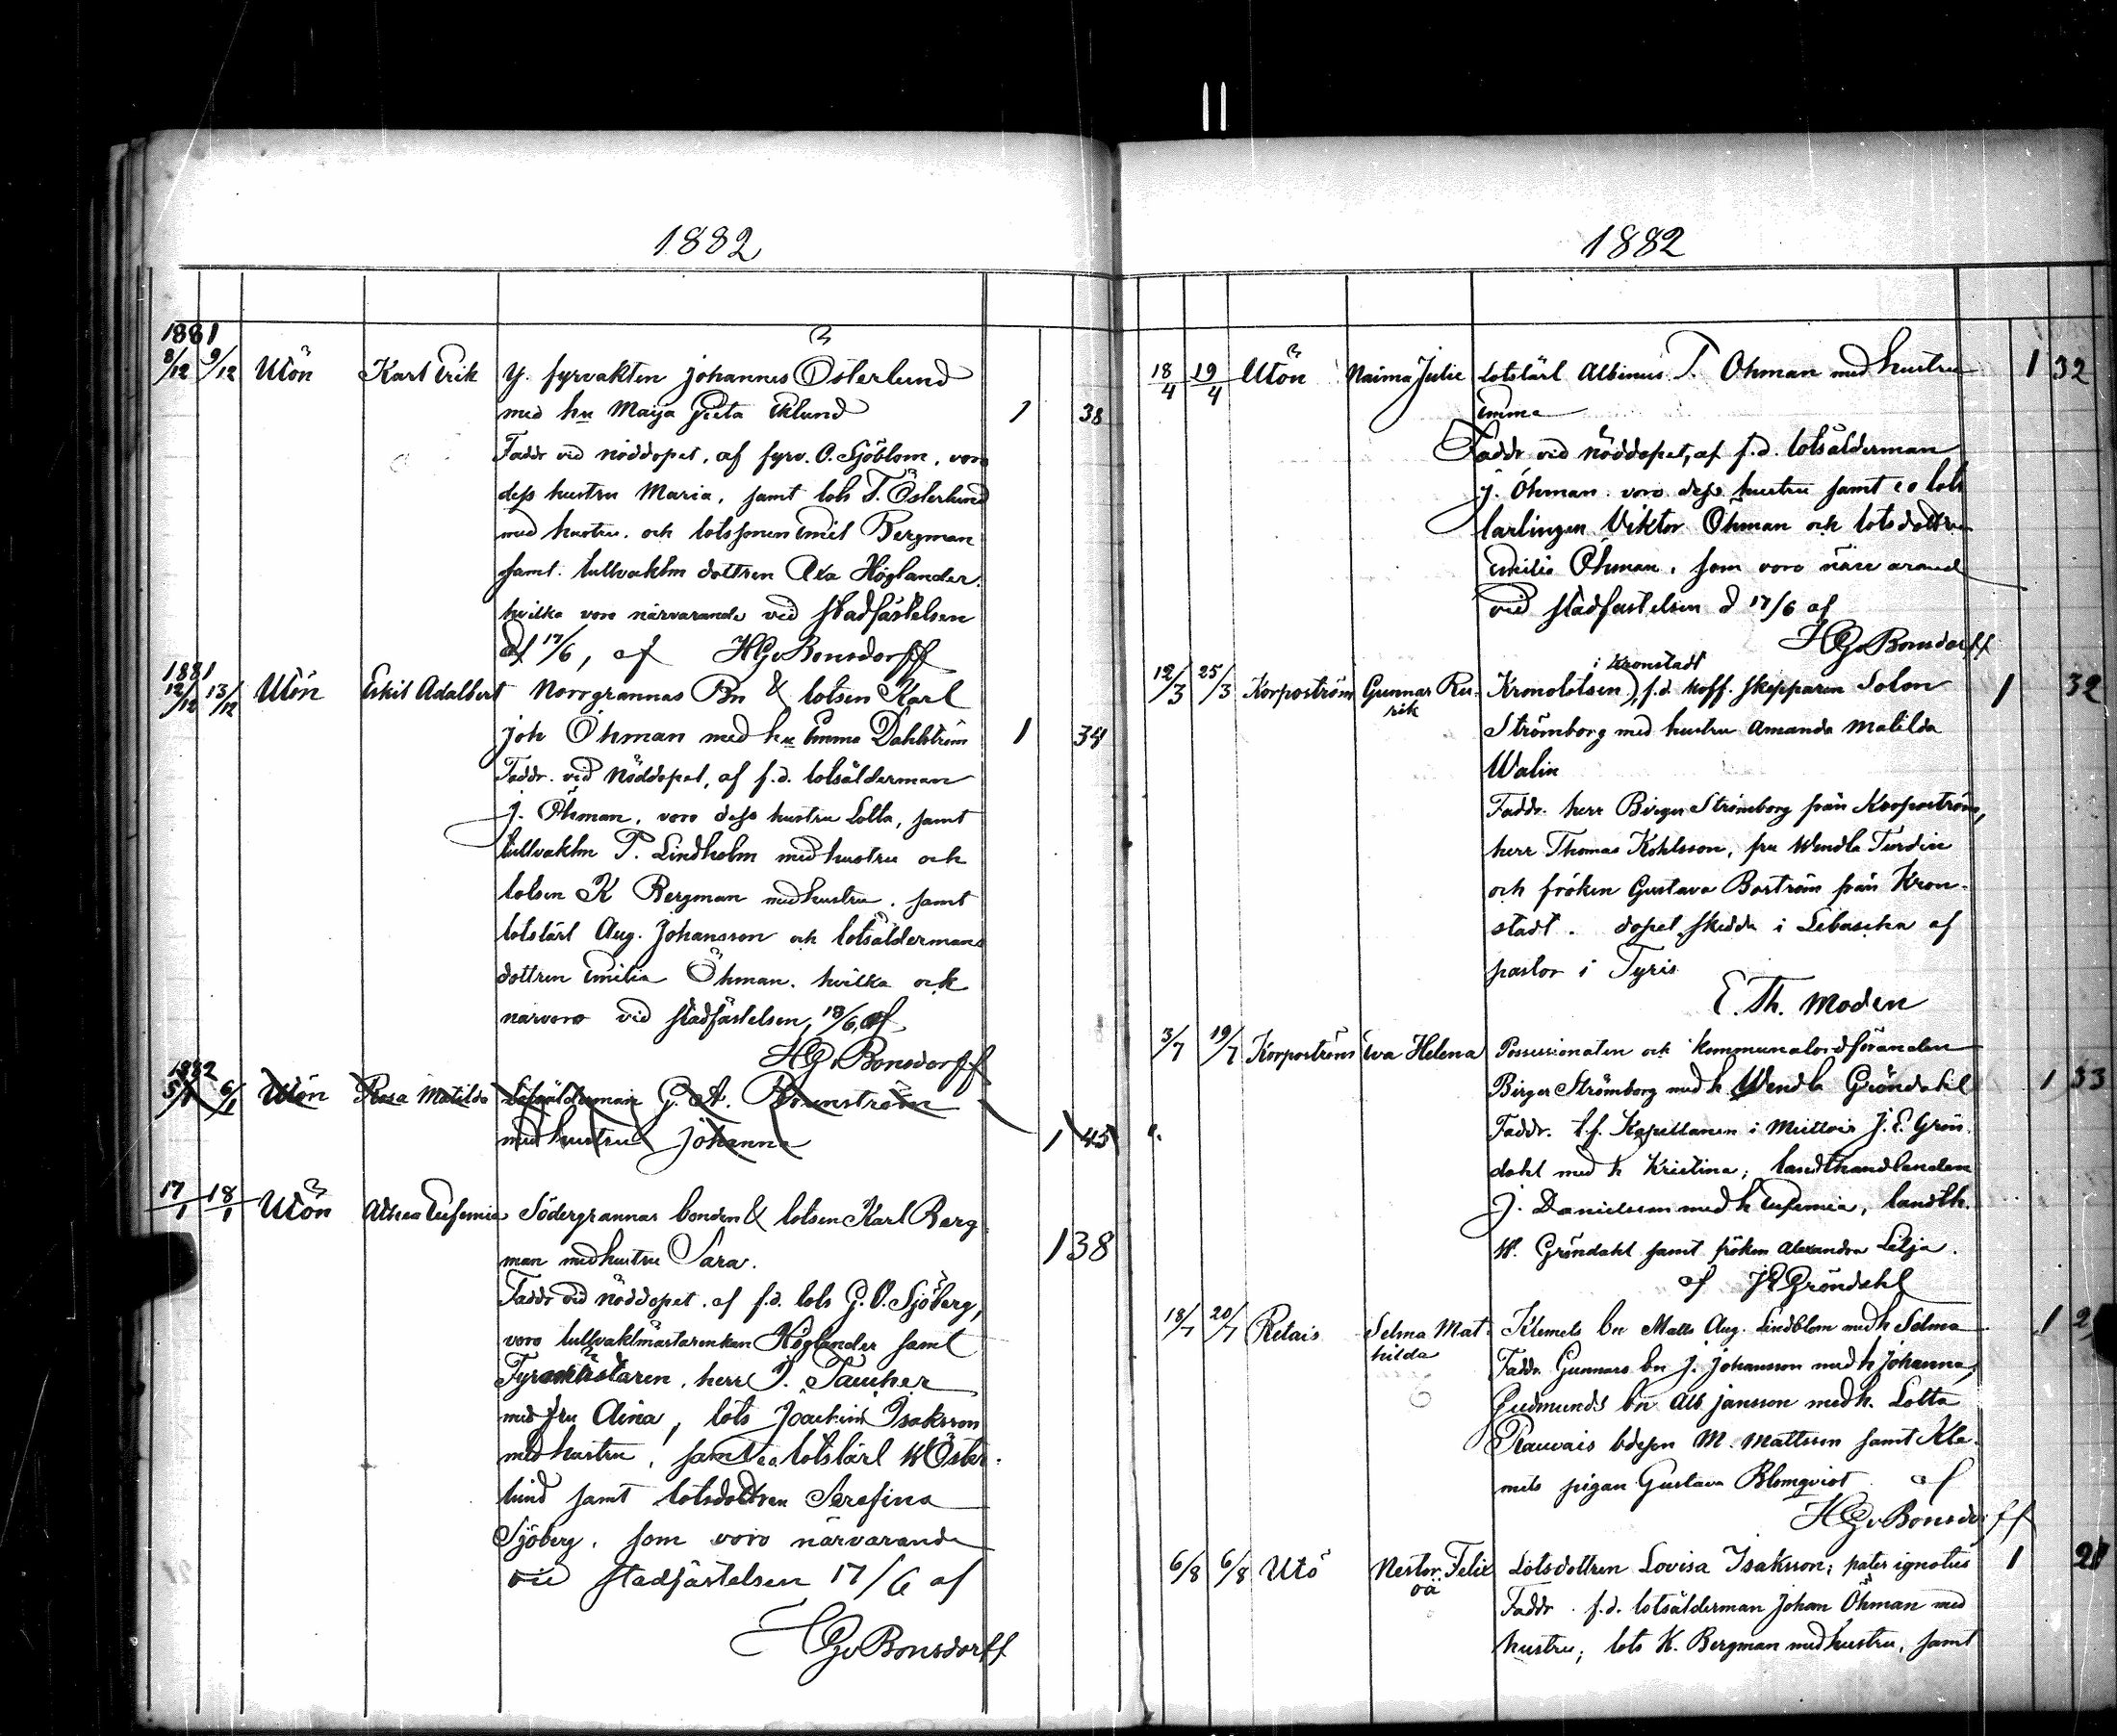 1882
1881
8/12 9/12 Utön Karl Erik y. fyrvakten Johannes Österlund
med hu Maija Greta Eklund 1 38
Faddr vid nöddopet, af fyrv. O. Sjöblom, voro
dess hustru Maria, samt lots T. Österlund
med hustru, och lotssonen Emil Bergman
samt tullvaktm dottren Axa Höglander
hvilka voro närvarande vid stadfästelsen
d 17/6, af HGvBonsdorff
1881
12/12 13/12 Utön Eskil Adalbert Norrgrannas Bn & lotsen Karl
Joh Öhman med hu Emma Dahlström 1 34
Faddr. vid nöddopet, af f.d. lotsålderman
J. Öhman, voro dess hustru Lotta, samt
tullvaktm P. Lindholm med hustru och
lotsen K Bergman med hustru, samt
lotslärl Aug. Johansson och lotsåldermans
dottren Emilia Öhman, hvilka ock
närvoro vid stadfästelsen, 18/6, af
HGvBonsdorff
1882
5/1 6/1 Utön Rosa Matilda Lotsålderman G. A. Brunström
med hustru Johanna 1 45
17/1 18/1 Utön Althea Eufemia Södergrannas bonden & lotsen Karl Berg
man med hustru Sara. 1 38
Faddr vid nöddopet, af f.d. lots G. O. Sjöberg,
voro tullvaktmästarenkan Höglander samt
Fyrmästaren, herr J. Taucher
med fru Aina, lots Joachim Isaksson
med hustru, samt eo lotslärl W Öster-
lund samt lotsdottren Serafina
Sjöberg, som voro närvarande
vid stadfästelsen 17/6 af
HGvBonsdorff
1882
18/4 19/4 Utön Naima Julie Lotslärl Albinus T. Öhman med hustru 1 32
Emma
Faddr vid nöddopet, af f.d. lotsålderman
J. Öhman voro dess hustru samt eo lots
lärlingen Viktor Öhman och lotsdottren
Emilia Öhman, som voro närvarande
vid stadfästelsen d 17/6 af
HGvBonsdorff
i Kronstadt
12/3 25/3 Korpoström Gunnar Ru- Kronolotsen), f.d. koff. skepparen Solon 1 32
rik Strömborg med hustru Amanda Matilda
Walin
Faddr. herr Birger Strömborg från Korpoström,
herr Thomas Kohlsson, fru Wendla Turdin
och fröken Gustava Boström från Kron-
stadt. dopet skedde i Lebascha af
pastor i Tyris
E. Th. Moden
3/7 19/7 Korpoström Eva Helena Possessionaten och kommunalordföranden
Birger Strömborg med h. Wendla Gröndahl 1 33
Faddr. t.f. Kapellanen i Mietois J. E. Grön-
dahl med h Kristina; landthandlanden
J. Danielsson med h Eufemia, landth.
W. Gröndahl samt fröken Alexandra Lilja.
af JEGröndahl
18/7 20/7 Retais Selma Mat- Klemets bn Matts Aug. Lindblom med h Selma 1 2
hilda Faddr. Gunnars bn J. Johansson med h Johanna,
Gudmunds bn Alb Jansson med h. Lotta
Rauvais bdeson M. Mattsson samt Kle-
mets pigan Gustava Blomqvist af
HGvBonsdorff
6/8 6/8 Utö Nestor Felix Lotsdottren Lovisa Isaksson; pater ignotus 1 21
oä Faddr. f.d. lotsålderman Johan Öhman med
hustru; lots K. Bergman med hustru, samt